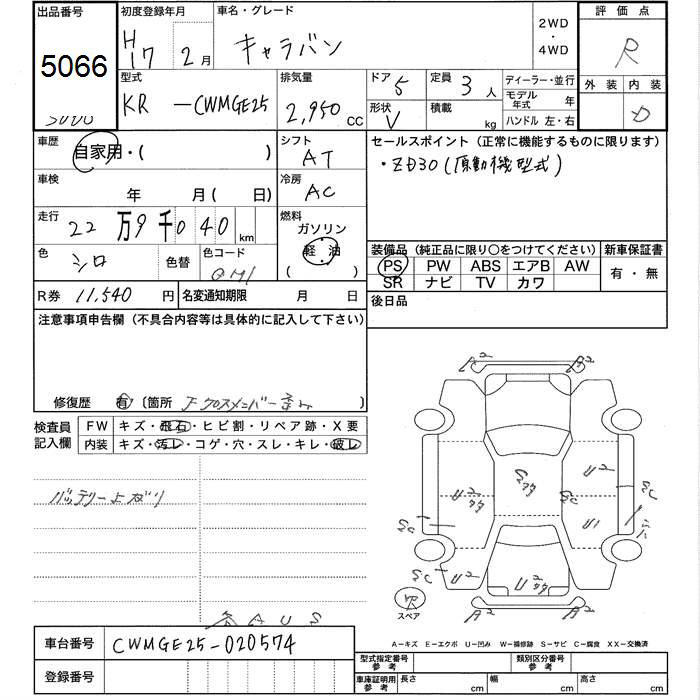 出品番号
5066
初度登録年月
H17 2月
車名・グレード
キャラバン
2WD
・
4WD
評価点
R
外装 内装
D
型式
KR -CWMGE25
排気量
2,950 CC
ドア 5
定員 3人
ディーラー・並行
形状 V
積載 kg
モデル年式 年
ハンドル 左・右
車歴
自家用・( )
シフト
AT
セールスポイント (正常に機能するものに限ります)
・ZD30(原動機型式)
車検
年 月( 日)
冷房
AC
走行
22万9千040 km
燃料
ガソリン
軽油
( )
色
シロ
色替
色コード
QM1
装備品 (純正品に限り○をつけてください)
新車保証書
PS PW ABS エアB AW
有・無
SR ナビ TV カワ
R券 11,540 円
名変通知期限 月 日
後日品
注意事項申告欄 (不具合内容等は具体的に記入して下さい)
修復歴 有 (箇所 F・クロスメンバー
検査員
記入欄
FW キズ・飛石・ヒビ割・リペア跡・X要
内装 キズ・汚レ・コゲ・穴・スレ・キレ・破レ
バッテリー上がり
A2 A2
U2
SC
SC
U1
U2
SC
U2
スペア
A2 A2
A-キズ E-エクボ U-凹み W-補修跡 S-サビ C-腐食 XX-交換済
車台番号 CWMGE25-020574
登録番号
型式指定番号
参考
類別区分番号
参考
車庫証明用
参考
長さ cm
幅 cm
高さ cm